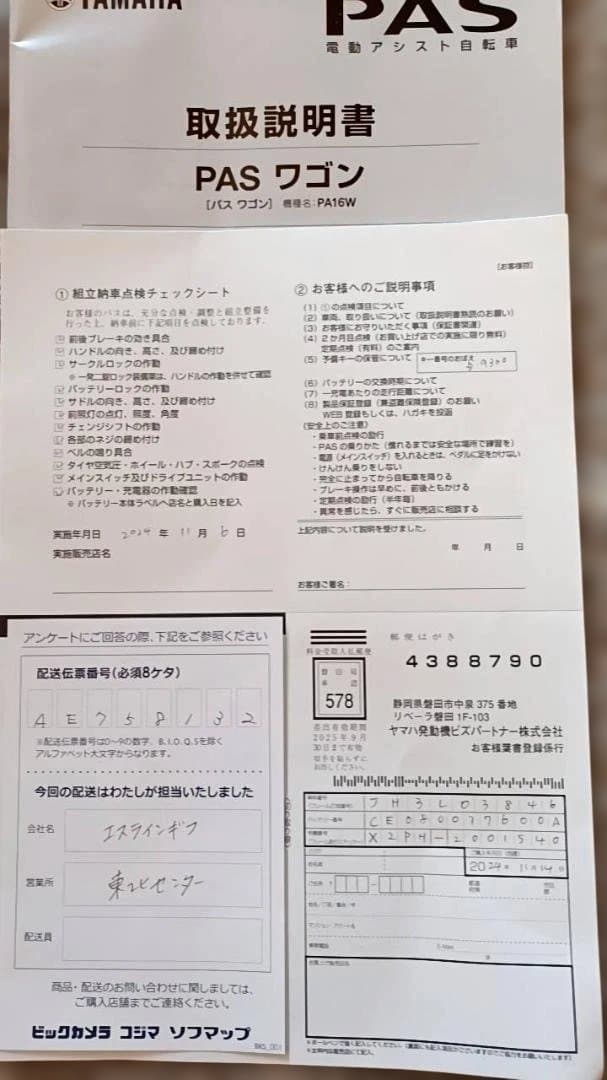 YAMAHA
PAS
電動アシスト自転車
取扱説明書
PAS ワゴン
[パス ワゴン] 機種名:PA16W
[お客様控]
① 組立納車点検チェックシート
お客様のパスは、充分な点検・調整と組立整備を
行った上、納車前に下記項目を点検しております。
前後ブレーキの効き具合
ハンドルの向き、高さ、及び締め付け
サークルロックの作動
※一発二錠ロック装備車は、ハンドルの作動を併せて確認
バッテリーロックの作動
サドルの向き、高さ、及び締め付け
前照灯の点灯、照度、角度
チェンジシフトの作動
各部のネジの締め付け
ベルの鳴り具合
タイヤ空気圧・ホイール・ハブ・スポークの点検
メインスイッチ及びドライブユニットの作動
バッテリー・充電器の作動確認
※ バッテリー本体ラベルへ店名と購入日を記入
実施年月日 2024 年 11 月 6 日
実施販売店名
② お客様へのご説明事項
(1) ①の点検項目について
(2) 車両、取り扱いについて(取扱説明書熟読のお願い)
(3) お客様にお守りいただく事項(保証書関連)
(4) 2か月目点検(お買い上げ店での実施に限り無料)
定期点検(有料)のご案内
(5) 予備キーの保管について
キー番号のおぼえ
9300
(6) バッテリーの交換時期について
(7) 一充電あたりの走行距離について
(8) 製品保証登録(兼盗難保険登録)のお願い
WEB登録もしくは、ハガキを投函
(安全上のご注意)
・乗車前点検の励行
・PASの乗りかた(慣れるまでは安全な場所で練習を)
・電源(メインスイッチ)を入れるときは、ペダルに足をかけない
・けんけん乗りをしない
・完全に止まってから自転車を降りる
・ブレーキ操作は早めに、前後ともかける
・定期点検の励行(半年毎)
・異常を感じたら、すぐに販売店に相談する
上記内容について説明を受けました。
年 月 日
お客様ご署名:
アンケートにご回答の際、下記をご参照ください
配送伝票番号(必須8ケタ)
A E 7 5 8 1 3 2
※配送伝票番号は0~9の数字、B.I.O.Q.Sを除く
アルファベット大文字からなります。
今回の配送はわたしが担当いたしました
会社名 エスラインギフ
営業所
センター
配送員
商品・配送のお問い合わせに関しましては、
ご購入店舗までご連絡ください。
ビックカメラ コジマ ソフマップ
BKS_001
郵便はがき
料金受取人払郵便
磐田局
承認
578
差出有効期間
2025年9月
30日まで有効
切手を貼らずに
お出しください。
4388790
静岡県磐田市中泉 375 番地
リベーラ磐田 1F-103
ヤマハ発動機ビズパートナー株式会社
お客様葉書登録係行
J H 3 L 0 3 8 4 6
バッテリー番号
C E 0 8 0 0 3 7 6 0 0 A
X 2 P H - 2 0 0 1 5 4 0
2024年 11月14日